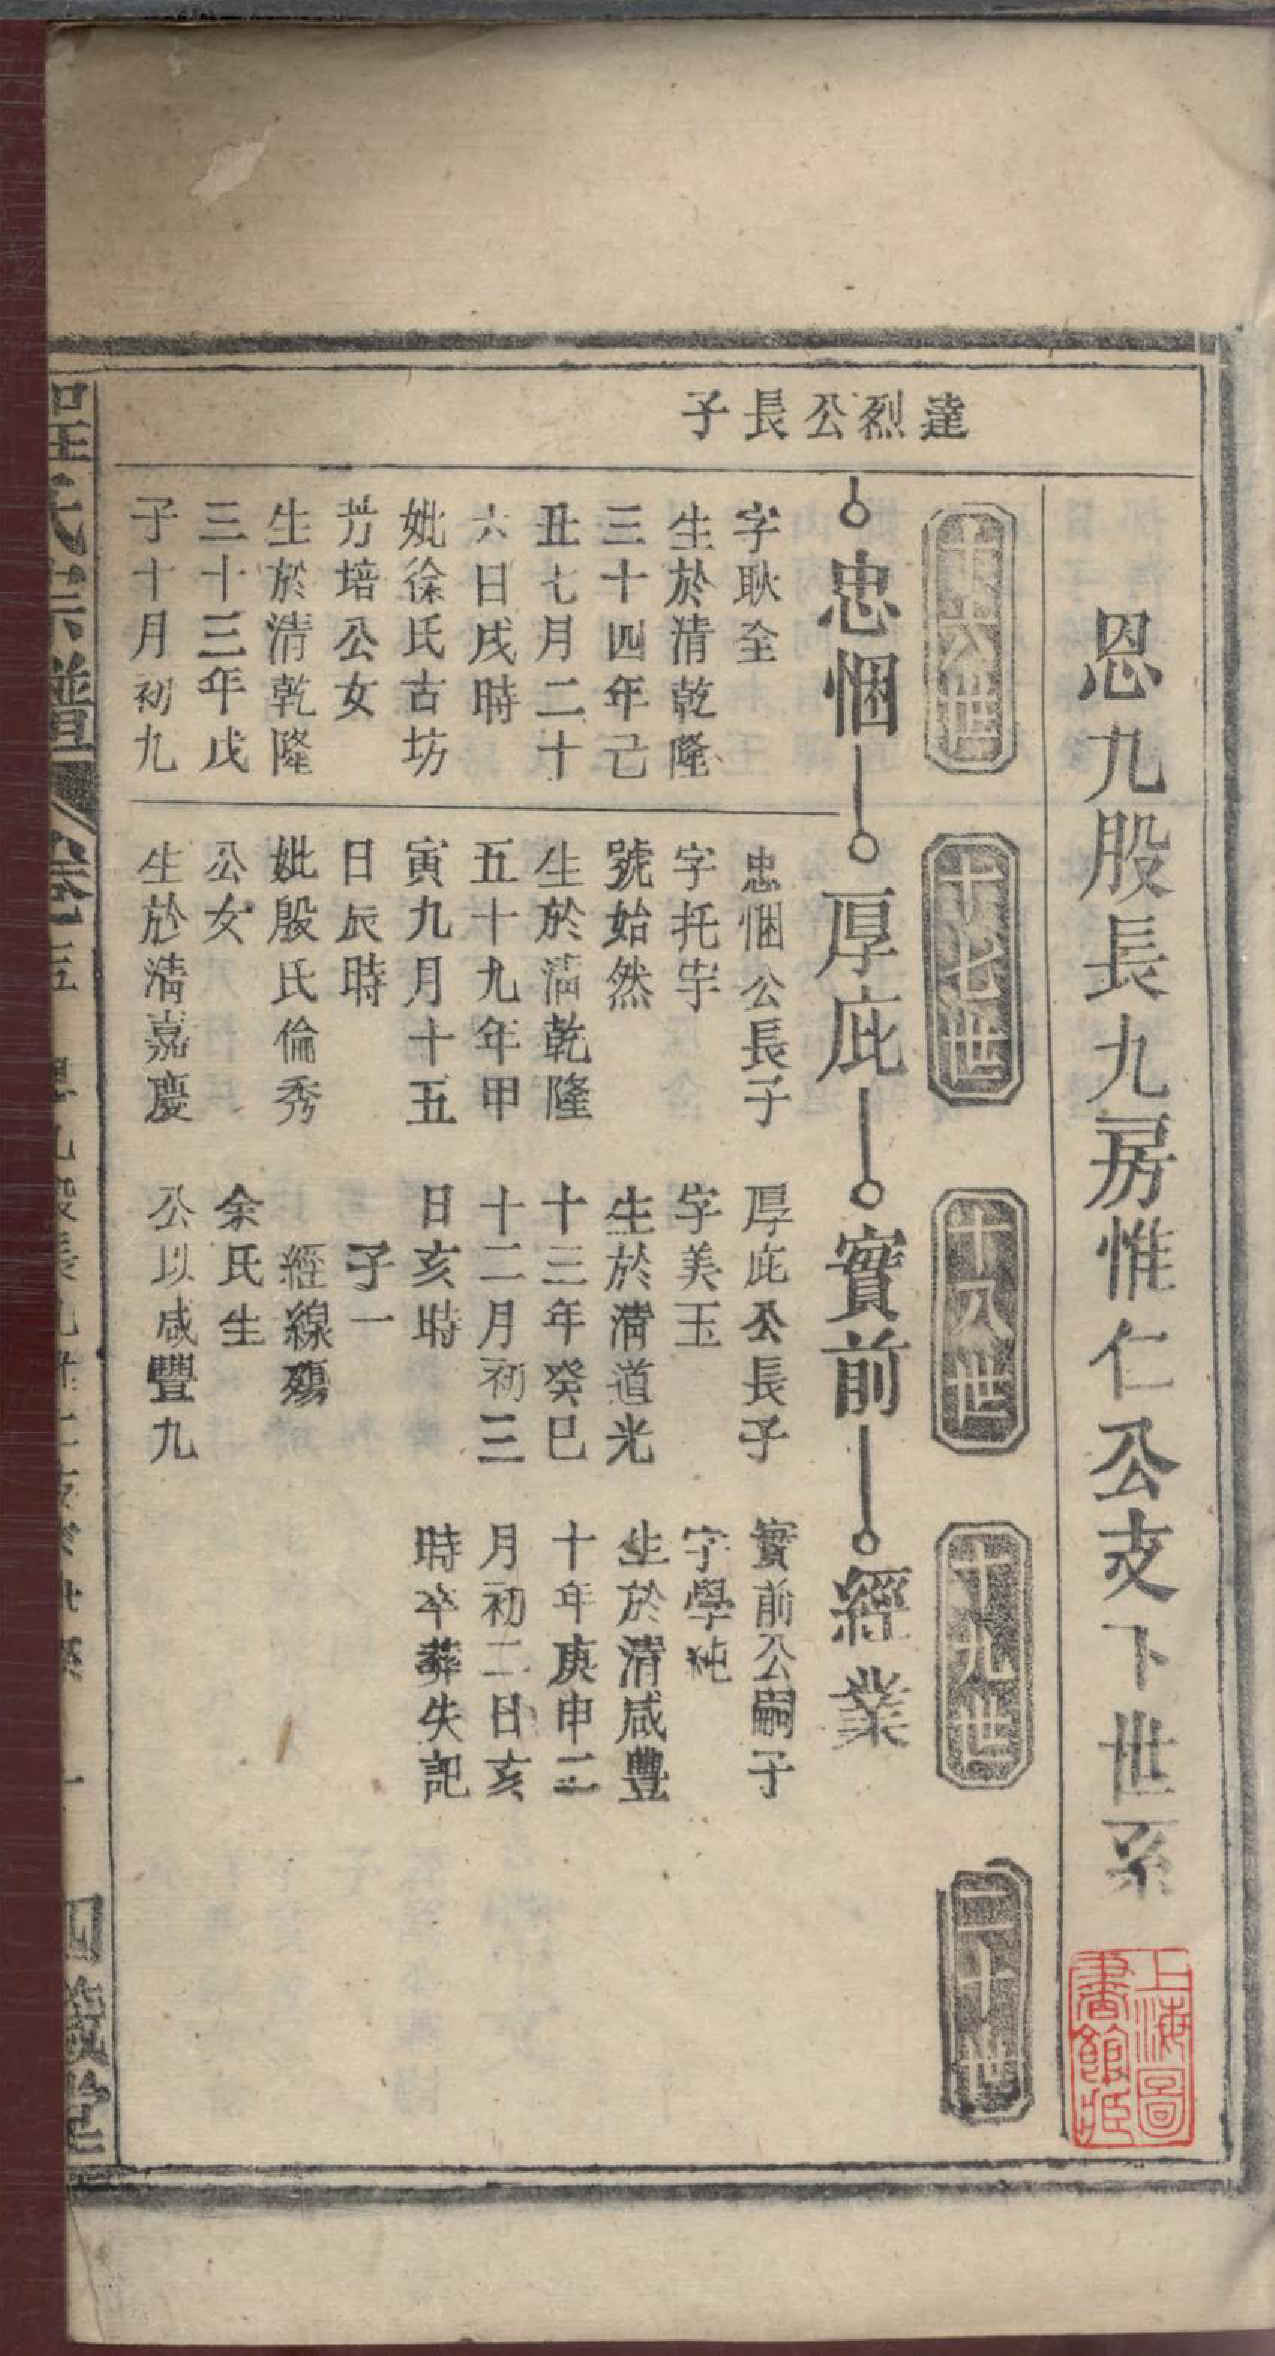 恩九股長九房惟仁公支下世系
上海圖
書館藏
達烈公長子
十六世
忠悃
字耿全
生於清乾隆
三十四年己
丑七月二十
六日戌時
妣徐氏古坊
芳培公女
生於清乾隆
三十三年戊
子十月初九
十七世
厚庇
忠悃公長子
字托宇
號始然
生於清乾隆
五十九年甲
寅九月十五
日辰時
妣殷氏倫秀
公女
生於清嘉慶
十八世
實前
厚庇公長子
字美玉
生於清道光
十三年癸巳
十二月初三
日亥時
子一
經線殤
余氏生
公以咸豐九
十九世
經業
實前公嗣子
字學純
生於清咸豐
十年庚申二
月初二日亥
時卒葬失記
二十世
程氏宗譜 卷五 恩九股長九 一 四箴堂